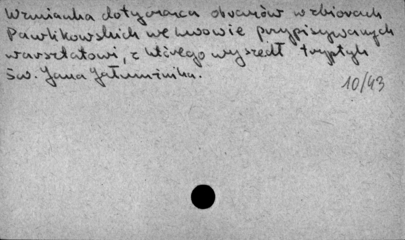 Wzmianka dotycząca obrazów w zbiorach
Pawlikowskich we Lwowie przypisywanych
warsztatowi, z którego wyszedł tryptyk
św. Jana Jałmużnika.
10/43